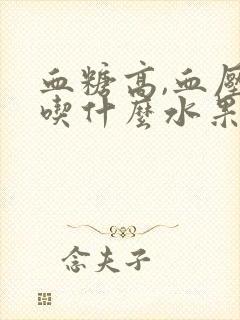 血糖高,血壓
喫什麼水果
念夫子